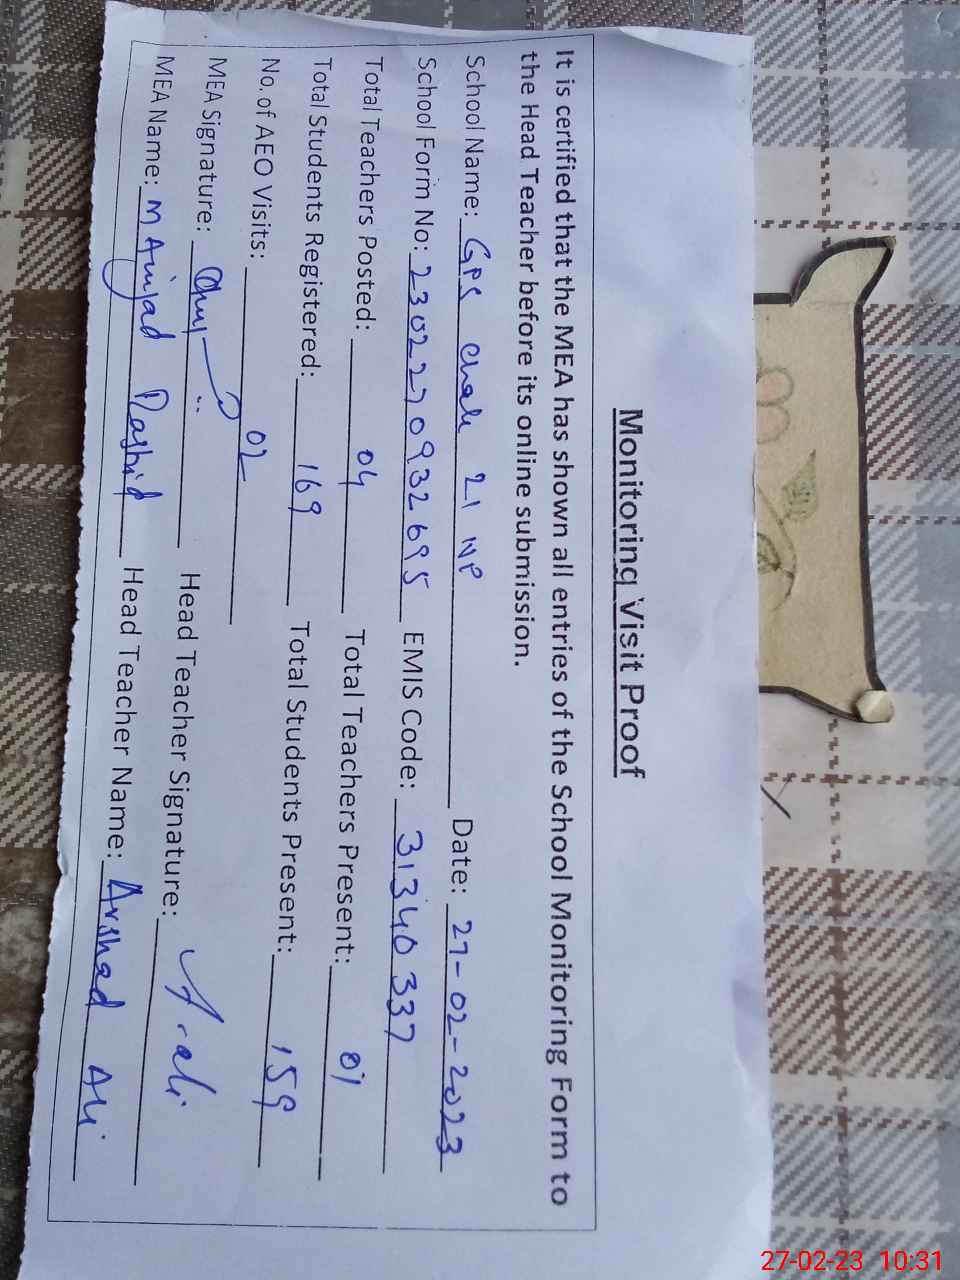 Monitoring Visit Proof
It is certified that the MEA has shown all entries of the School Monitoring Form to
the Head Teacher before its online submission.
School Name: GPS Chak 21 NP Date: 27-02-2023
School Form No: 2302270932695 EMIS Code: 31340337
Total Teachers Posted: 04 Total Teachers Present: 01
Total Students Registered: 169 Total Students Present: 159
No. of AEO Visits: 02
MEA Signature: Head Teacher Signature: A-ali
MEA Name: M Amjad Rashid Head Teacher Name: Arshad Ali
27-02-23 10:31